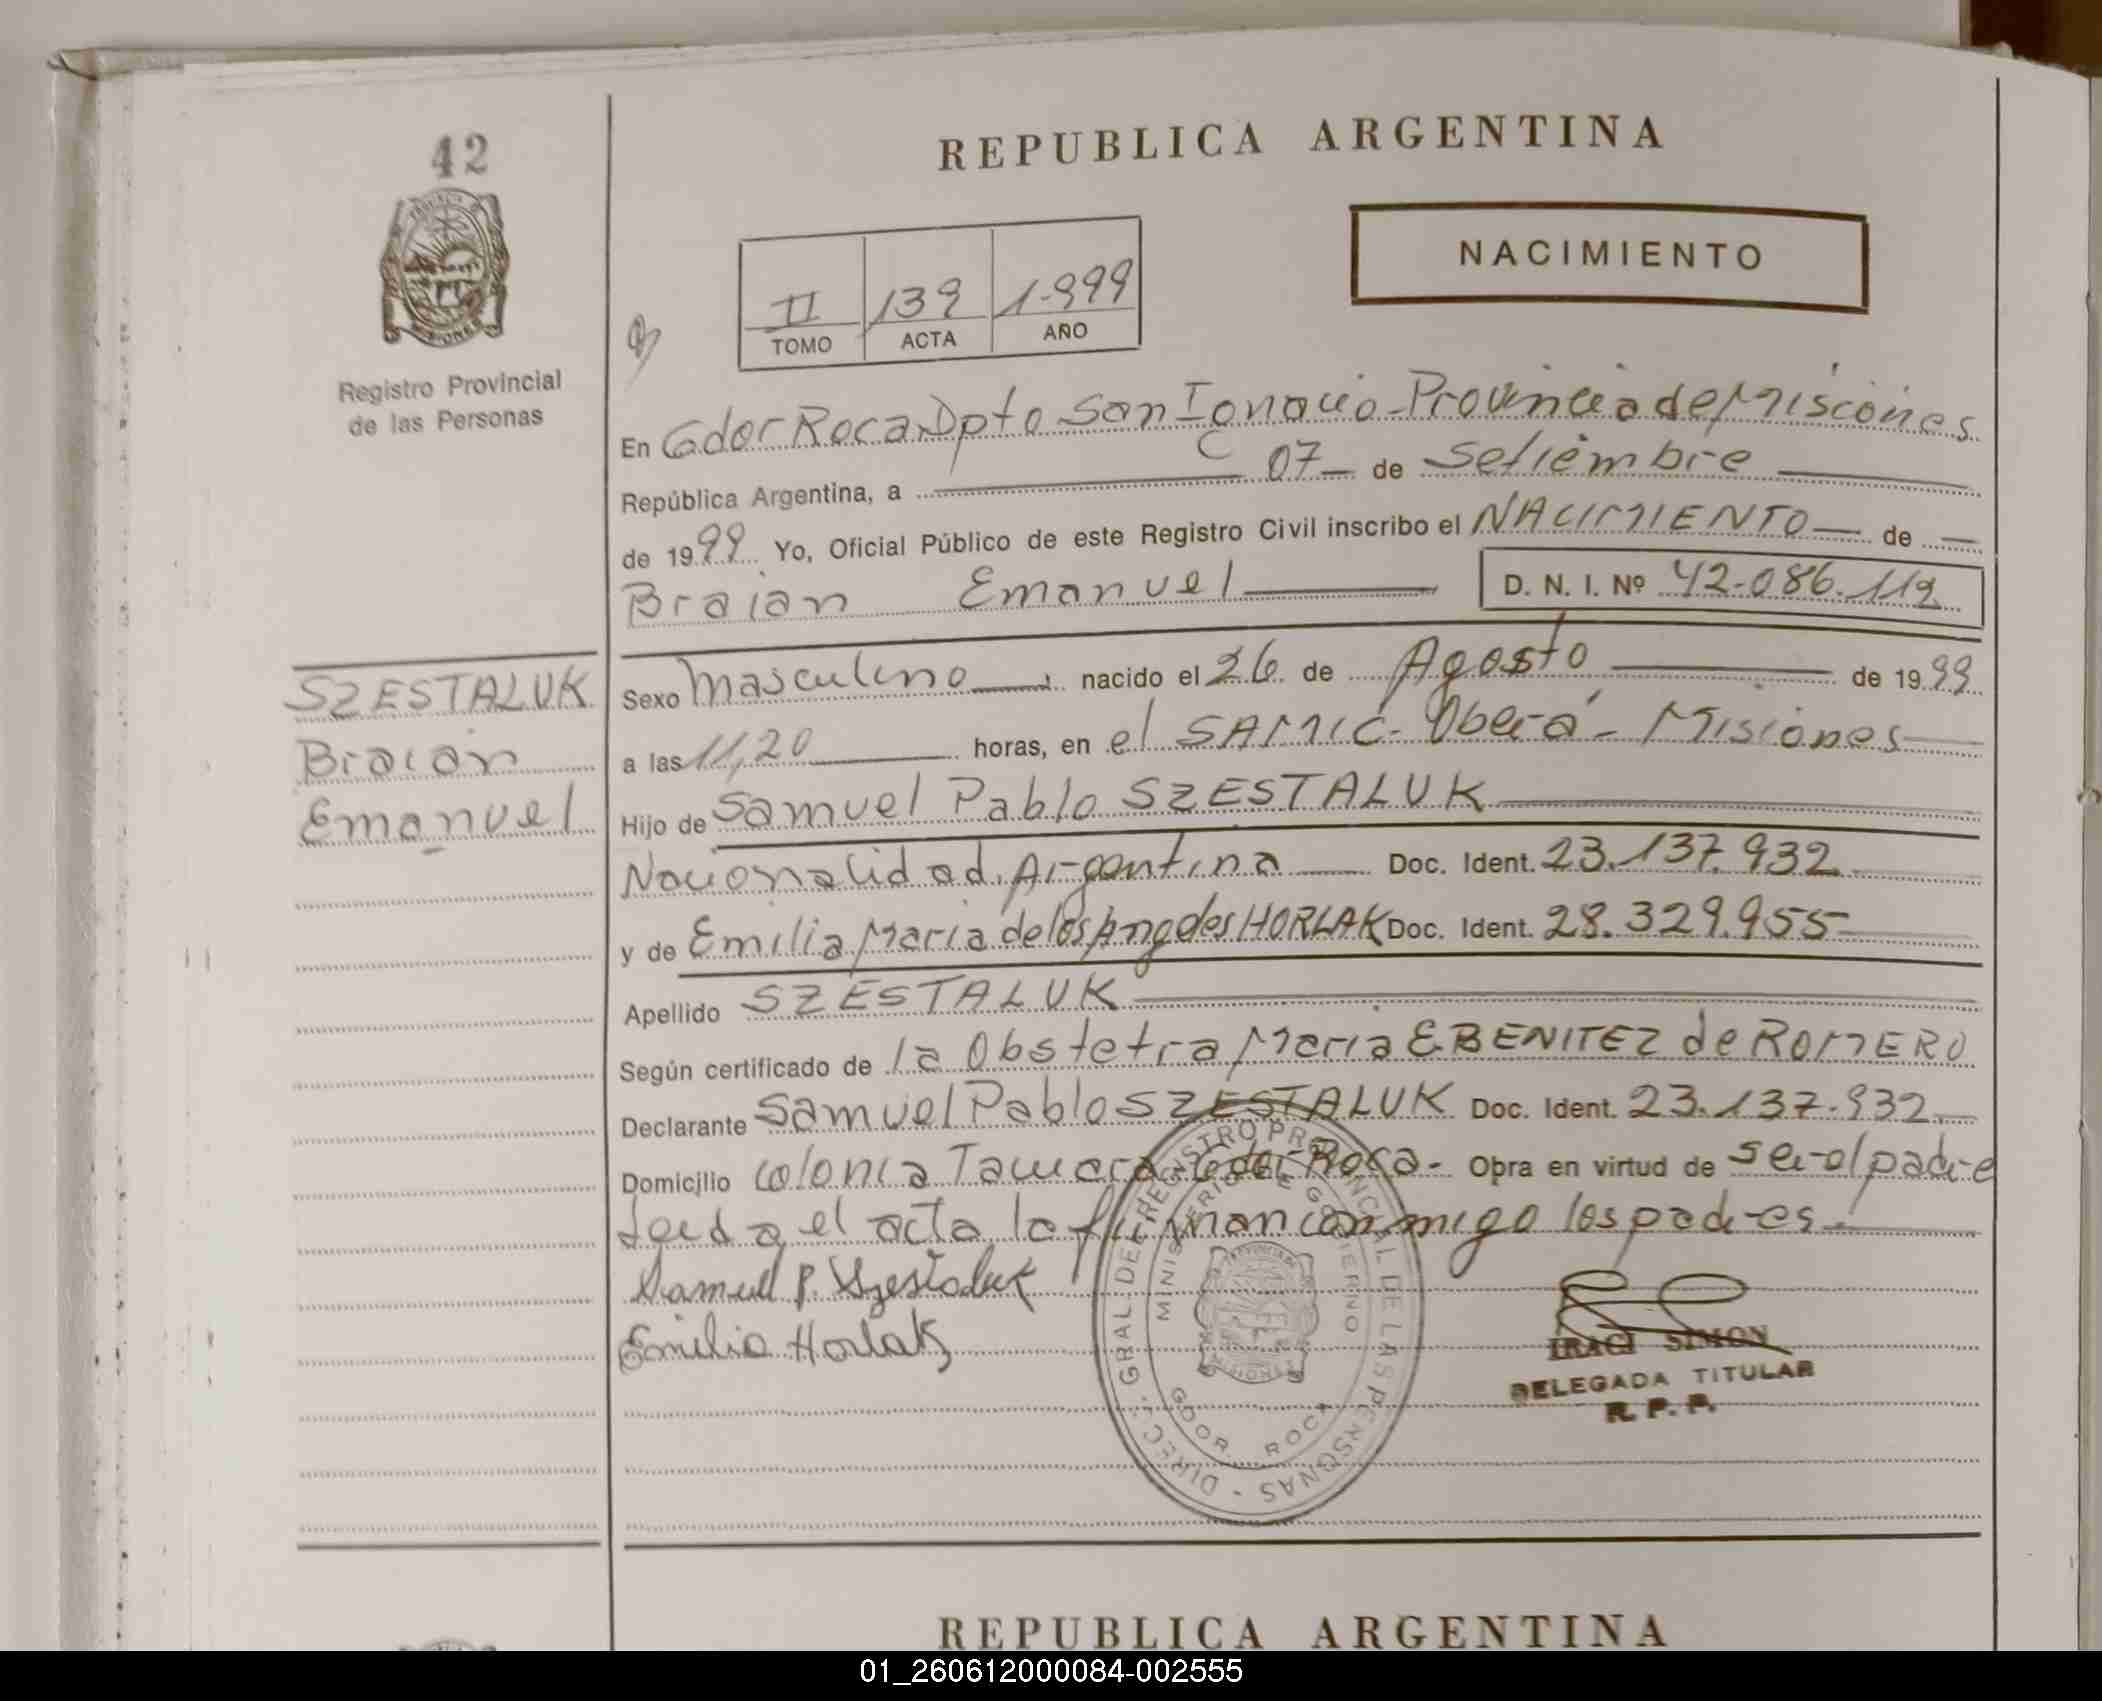 42
REPUBLICA ARGENTINA
NACIMIENTO
II 139 1.999
TOMO ACTA AÑO
Registro Provincial
de las Personas
En Gdor Roca Dpto San Ignacio - Provincia de Misiones
República Argentina, a 07 de Setiembre
de 1999 Yo, Oficial Público de este Registro Civil inscribo el NACIMIENTO de
Braian Emanuel D. N. I. Nº 42.086.112
SZESTALUK
Braian
Emanuel
Sexo Masculino, nacido el 26 de Agosto de 1999
a las 11,20 horas, en el SAMIC - Oberá - Misiones
Hijo de Samuel Pablo SZESTALUK
Nacionalidad Argentina Doc. Ident. 23.137.932
y de Emilia Maria de los Angeles HORLAK Doc. Ident. 28.329.955
Apellido SZESTALUK
Según certificado de la Obstetra Maria E. BENITEZ de ROMERO
Declarante Samuel Pablo SZESTALUK Doc. Ident. 23.137.932
Domicilio Colonia Gdor Roca - Obra en virtud de ser el padre
Leida el acta la firman conmigo los padres.
Samuel P. Szestaluk
Emilia Horlak
DIREC. GRAL. DEL REGISTRO PROVINCIAL DE LAS PERSONAS
MINISTERIO DE GOBIERNO
GDOR. ROCA
IRACI SIMON
DELEGADA TITULAR
R. P. P.
REPUBLICA ARGENTINA
01_260612000084-002555